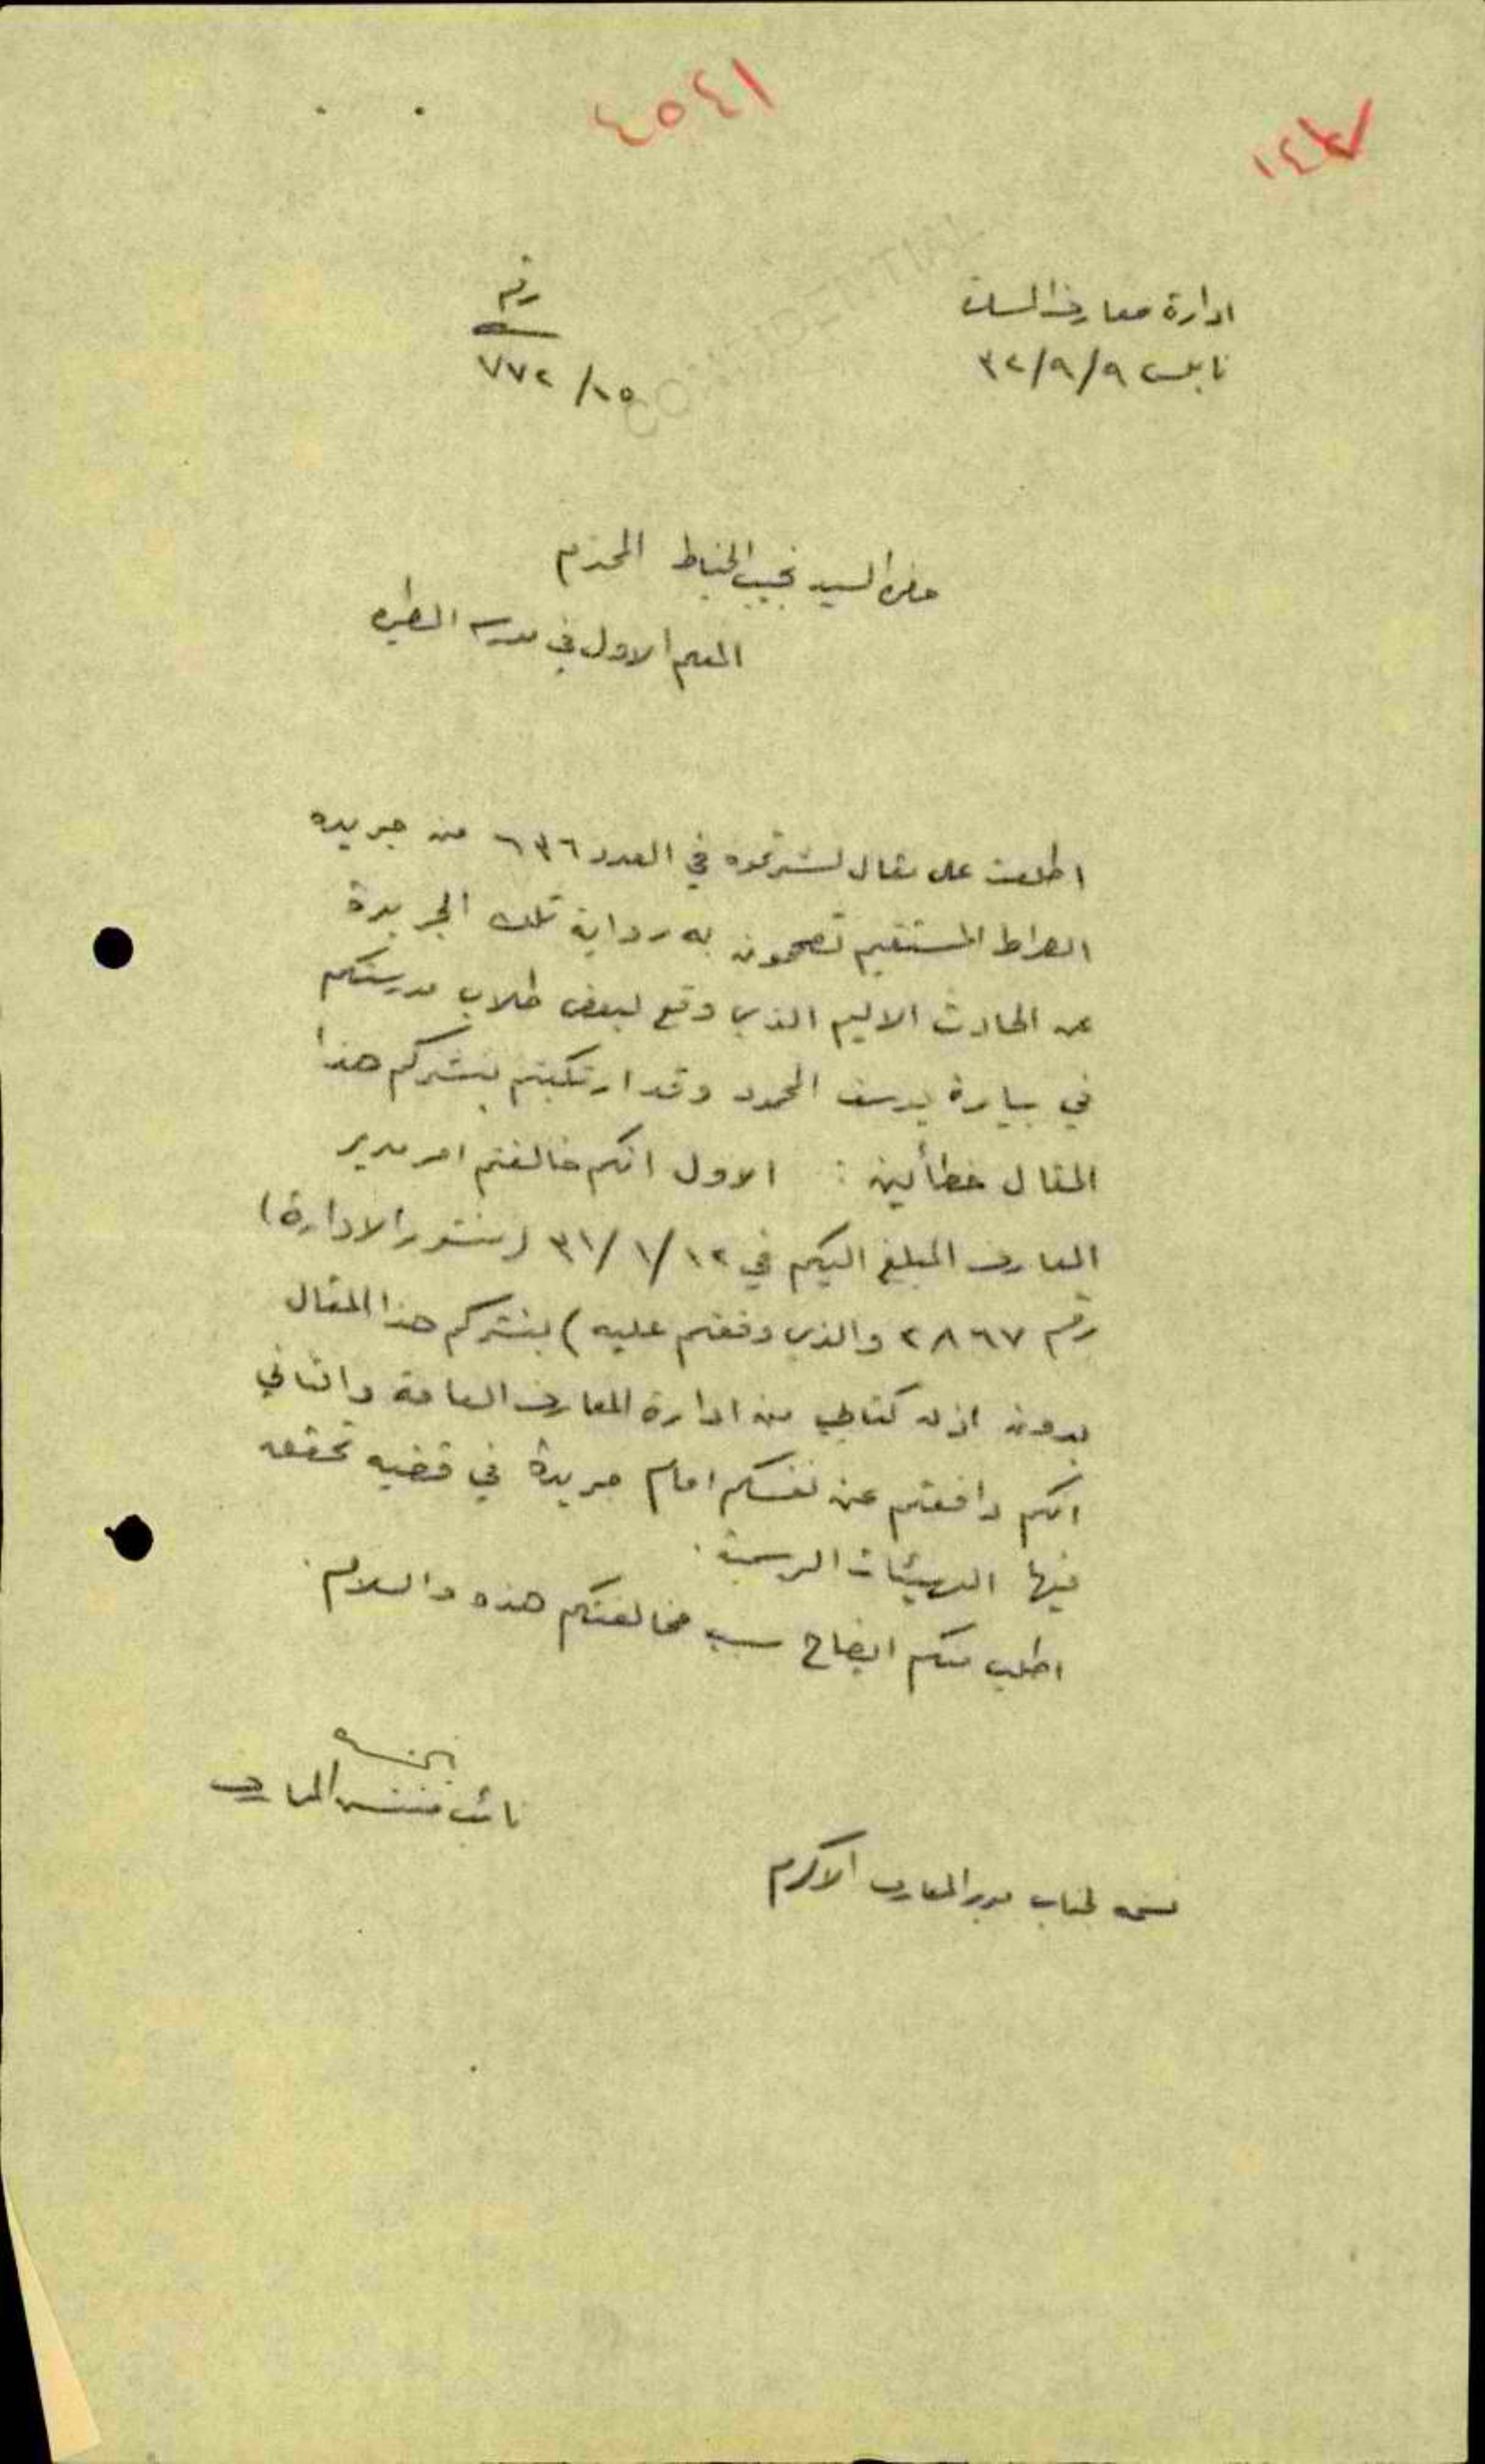 ٤٥٤١
١٤٧
CONFIDENTIAL
ادارة معارف السامرة
نابلس ٣٢/٩/٩
رقم
٧٧٢/١٥
حضرة السيد نجيب الخياط المحترم
المعلم الاول في مدرسة الطيره
اطلعت على مقال نشرتموه في العدد ٦٣٦ من جريدة
الصراط المستقيم تصححون به رواية تلك الجريدة
عن الحادث الاليم الذي وقع لبعض طلاب مدرستكم
في بيارة يوسف المحمود وقد ارتكبتم بنشركم هذا
المقال خطأين : الاول انكم خالفتم امر مدير
المعارف المبلغ اليكم في ٣١/١/١٢ (منشور الادارة)
رقم ٢٨٦٧ والذي وقعتم عليه) بنشركم هذا المقال
بدون اذن كتابي من ادارة المعارف العامة والثاني
انكم دافعتم عن نفسكم امام جريدة في قضيه تحقق
فيها الهيئات الرسمية .
اطلب منكم ايضاح سبب مخالفتكم هذه والسلام .
نائب مفتش المعارف
نسخه لجناب مدير المعارف الاكرم